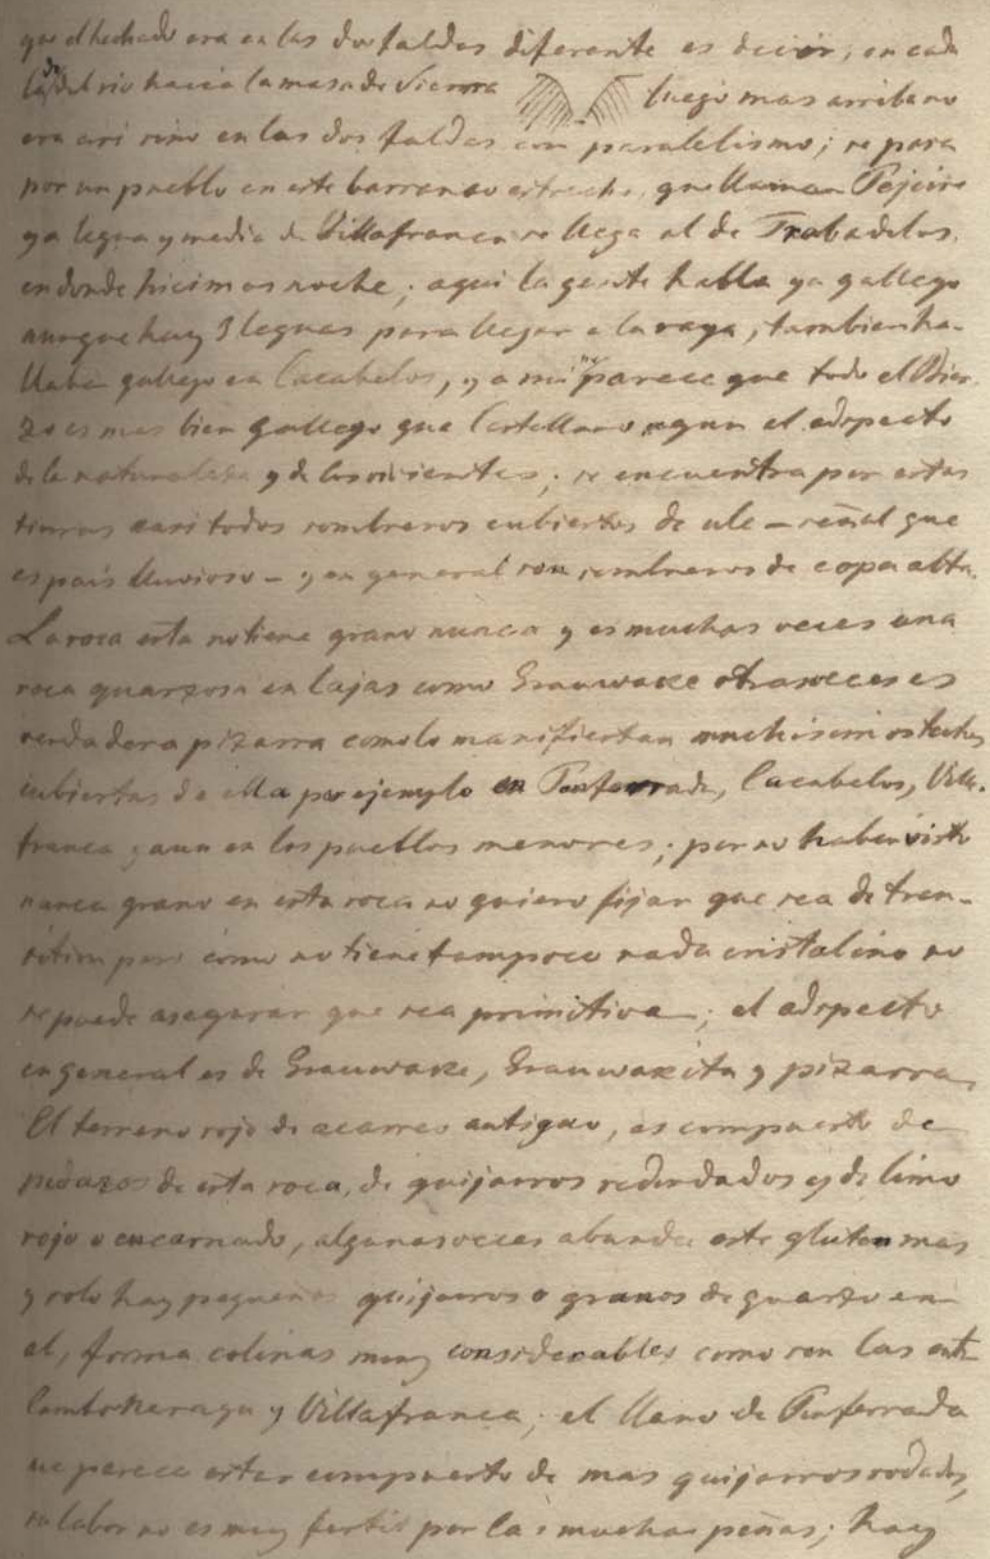 que el hechado era en las dos faldas diferente es decir, en cada
lado del rio hacia la masa de Sierra luego mas arriba no
era asi sino en las dos faldas con paralelismo; se pasa
por un pueblo en este barranco estrecho que llaman Pejeira
ya legua y media de Villafranca se llega al de Trabadelos,
en donde hicimos noche; aqui la gente habla ya gallego
aunque hay 3 leguas para llegar a la raya, tambien ha-
blaba gallego en Cacabelos, y a mi me parece que todo el Bier-
zo es mas bien gallego que Castellano segun el adspecto
de la naturaleza y de los vivientes; se encuentra por estas
tierras casi todos sombreros cubiertos de ule - señal que
es país lluvioso - y en general son sombreros de copa alta.
La roca esta no tiene grano nunca y es muchas veces una
roca quarzosa en lajas como Grauwacke otras veces es
verdadera pizarra como lo manifiestan muchisimos techos
cubiertos de ella por ejemplo en Ponferrada, Cacabelos, Villa-
franca y aun en los pueblos menores; por no haber visto
nunca grano en esta roca no quiero fijar que sea de tran-
sition pero como no tiene tampoco nada cristalino no
se puede asegurar que sea primitiva; el adspecto
en general es de Grauwake, Grauwakita y pizarra
El terreno rojo de acarreo antiguo, es compuesto de
pedazos de esta roca, de guijarros redondados y de limo
rojo o encarnado, algunas veces abunda este gluten mas
y solo hay pequeños guijarros o granos de quarzo en
el, forma colinas muy considerables como son las entre
y Villafranca; el llano de Ponferrada
me parece estar compuesto de mas guijarros rodados,
su labor no es muy fertil por las muchas peñas; hay